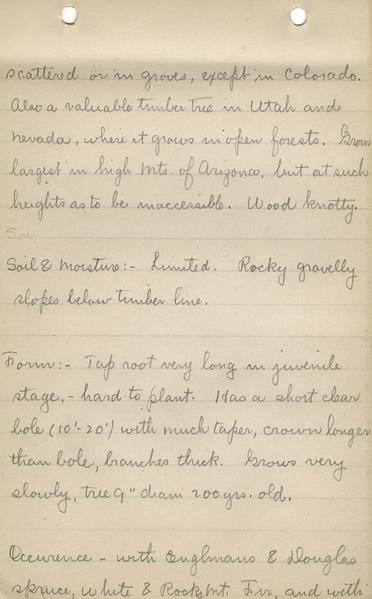 scattered or in groves, except in Colorado.
Also a valuable timber tree in Utah and
nevada, where it grows in open forests. Grows
largest in high Mts. of Arizona, but at such
heights as to be inaccessible. Wood knotty.
Soi
Soil & Moisture:- Limited. Rocky gravelly
slopes below timber line.
Form:- Tap root very long in juvenile
stage, - hard to plant. Has a short clear
bole (10'-20') with much taper, crown longer
than bole, branches thick. Grows very
slowly, tree 9" diam 200 yrs. old.
Occurence - with Englmans & Douglas
spruce, white & Rocky Mt. Fir, and with